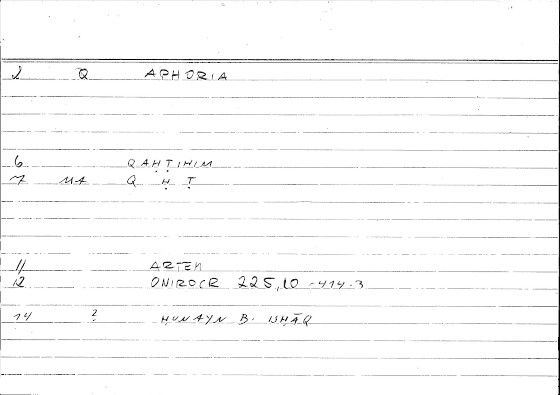 2 Q APHORIA
6 QAḤṬIHIM
7 MA Q Ḥ Ṭ
11 ARTEM
12 ONIROCR 225,10 - 414-3
14 ? ḤUNAYN B. ISḤĀQ